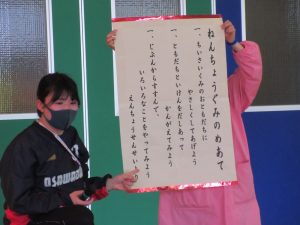 ねんちょうぐみのめあて
一、ちいさいくみのおともだちに
やさしくしてあげよう
一、ともだちといけんをだしあって
かんがえてみよう
一、じぶんからすすんで、
いろいろなことをやってみよう
えんちょうせんせい